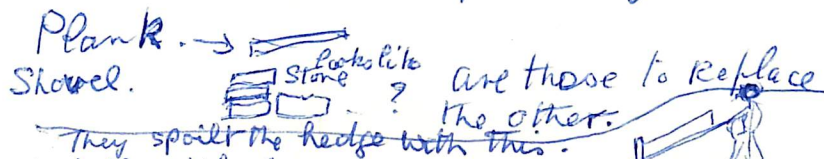 Plank.
looks like
Shovel. Stone ? are those to Replace
the other.
They spoilt the hedge with this.